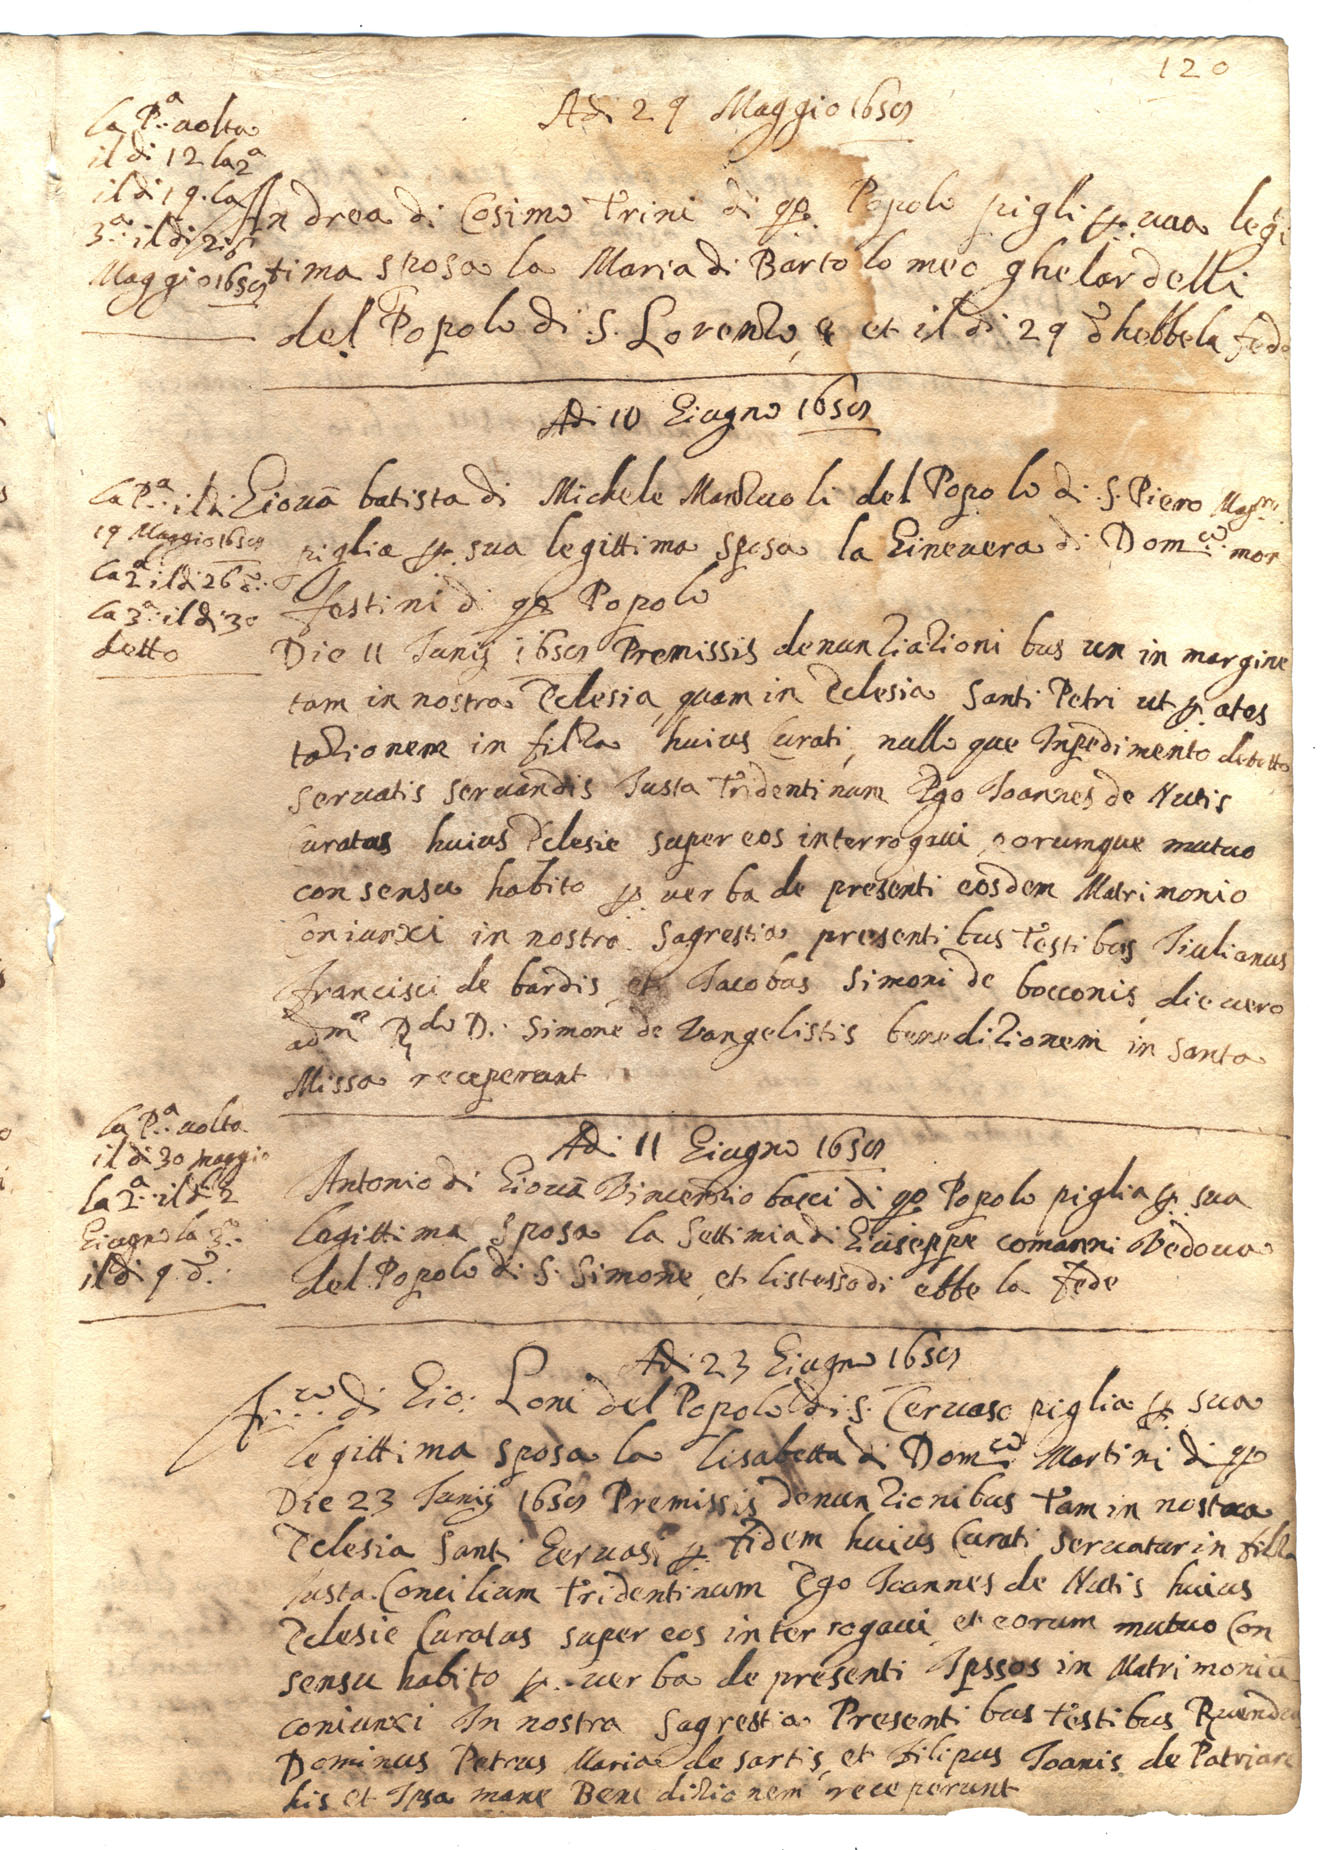 120
Adi 29 Maggio 1659
La P.ª uolta
il di 12 la 2ª
il di 19. La
3.ª il di 26
Maggio 1659
Andrea di Cosimo Trini di qo. Popolo pigli p. sua legi
tima sposa la Maria di Bartolomeo Ghelardelli
del Popolo di S. Lorenzo, e et il di 29 d.º hebbe la fede
Adi 10 Giugno 1659
La P.ª il di
19 Maggio 1659
La 2ª il di 26 d.º
La 3.ª il di 30
detto
Giouã batista di Michele Manzuoli del Popolo di .S. Piero Magri.
piglia p. sua legittima sposa la Gineuera di Dom.co mon
festini di qo Popolo
Die 11 Junij 1659 Premissis denunziazioni bus un in margine
tam in nostra Eclesia, quam in Eclesia Santi Petri ut p. ates
tazionem in filza huius Curati, nulloque Inpedimento detetto
seruatis seruandis Justa Tridentinum Ego Joannes de Nutis
Curatus huius Eclesie super eos interrogaui, eorumque mutuo
consensu habito p. uerba de presenti eosdem Matrimonio
Coniunxi in nostra Sagrestia presentibus testibus Jiulianus
Francisci de bardis, et Jacobus Simoni de bocconis, die uero
adm.º R.do D.: Simone de Vangelistis benedizionem in Santa
Missa receperunt
La P.ª uolta
il di 30 maggio
la 2.ª il di 2
Giugno la 3.ª
il di 9. d.º:
Adi 11 Giugno 1659
Antonio di Giouã Vincenzio bosci di qo Popolo piglia p. sua
legittima sposa la Settimia di Giuseppe comanni Vedoua
del Popolo di S. Simone, et listesso di ebbe la fede
Adi 23 Giugno 1659
Fr.co di Gio: Loni del Popolo di .S. Ceruaso piglia p. sua
legittima sposa la Lisabetta di Dom.co Martini di qo
Die 23 Junij 1659 Premissis denunzionibus tam in nostra
Eclesia Santi Geruasi p. fidem huius Curati seruatur in filza
Justa Concilium Tridentinum Ego Joannes de Nutis huius
Eclesie Curatus super eos interrogaui, et eorum mutuo Con
sensu habito p. uerba de presenti Ipssos in Matrimoniũ
coniunxi In nostra Sagrestia Presentibus testibus Ruendu
Dominus Petrus Maria de sartis, et Filipus Joanis de Patriarc
his et Ipsa mane Benedizionem receperunt